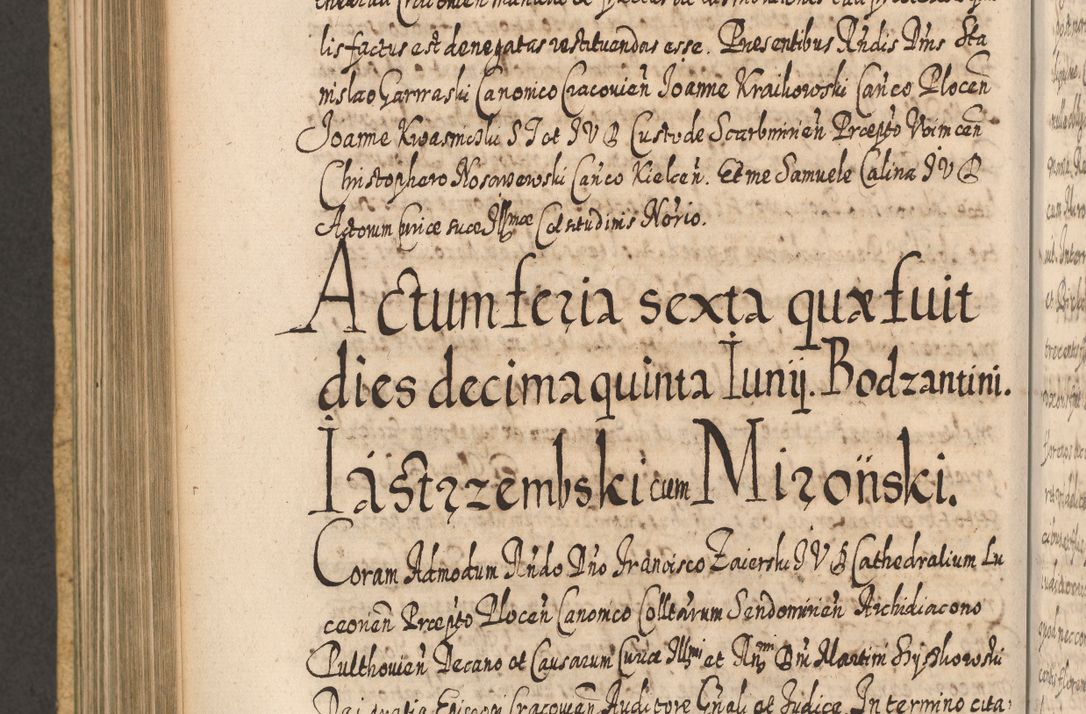 lis factus est denegatas restituendas esse. Pnesentibus Rndis Dnis Sta
nislao Garwaski Canonico Cracovien̄ Joanne Kraikowski Can̄co Plocen̄
Joanne Kwasnicski S T et I V D Custode Scarbmirien̄ Prcepto Woimcen̄
Christophero Nosowowski Can̄co Kielcen̄. Et me Samuele Calina I V D
Actorum Curiæ suce Illmæ Celsitudinis Norio.
Actum feria sexta quæ fuit
dies decima quinta Iunij. Bodzantini.
Iástrzembski cum Miroński.
Coram Admodum Rndo Dno Francisco Zaierski I V D Cathedralium Lu
ceorien̄ Prcepto Plocen̄ Canonico Colltarum Sendomirien̄ Archidiacono
Pulthovien̄ Decano et Causarum Curiæ Illmi et Rmi Dni Martini Szyszkowski
Dei gratia Episcopi Cracovien̄ Auditore Gn̄ali et Judice In termino cita